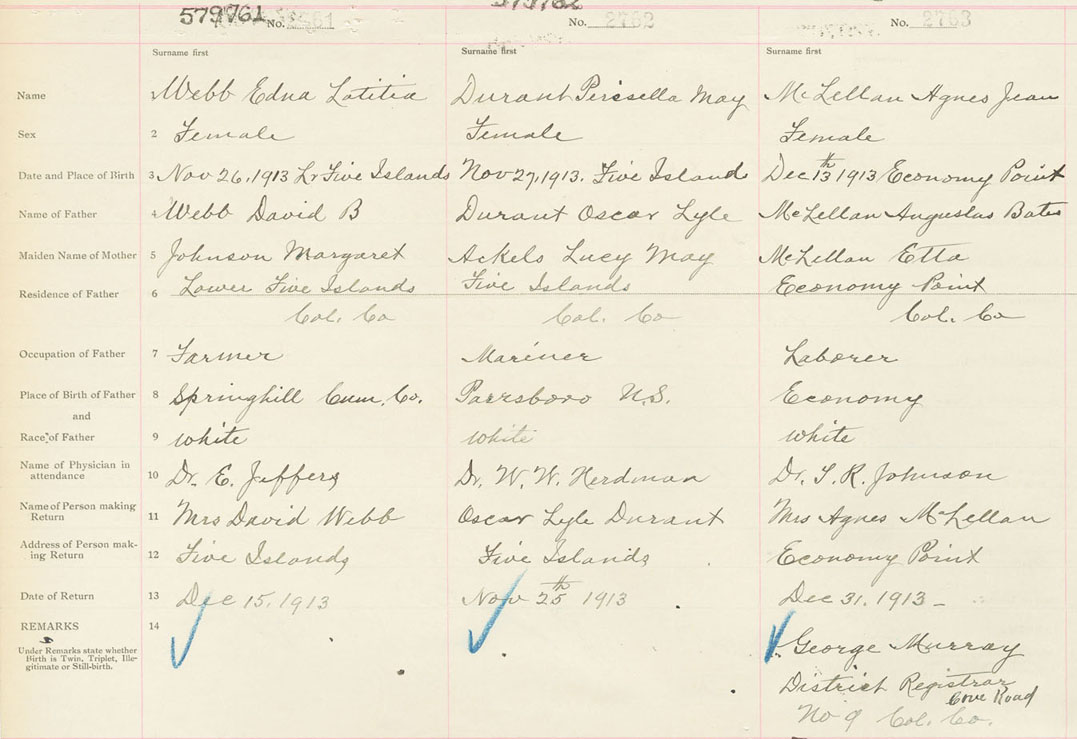 579761 No. 579762 No. 2762 No. 2763
Surname first Surname first Surname first
Name Webb Edna Latitia Durant Perssella May McLellan Agnes Jean
Sex 2 Female Female Female
Date and Place of Birth 3 Nov 26, 1913 Lr Five Islands Nov 27, 1913. Five Islands Dec 13th 1913 Economy Point
Name of Father 4 Webb David B Durant Oscar Lyle McLellan Augustus Bates
Maiden Name of Mother 5 Johnson Margaret Ackels Lucy May McLellan Etta
Residence of Father 6 Lower Five Islands Five Islands Economy Point
Col. Co Col. Co Col. Co
Occupation of Father 7 Farmer Mariner Laborer
Place of Birth of Father 8 Springhill Cum. Co. Parrsboro N.S. Economy
and
Race of Father 9 white white white
Name of Physician in
attendance 10 Dr. E. Jeffers Dr. W. W. Herdman Dr. T. R. Johnson
Name of Person making
Return 11 Mrs David Webb Oscar Lyle Durant Mrs Agnes McLellan
Address of Person mak-
ing Return 12 Five Islands Five Islands Economy Point
Date of Return 13 Dec 15, 1913 Nov 25th 1913 Dec 31. 1913 -
REMARKS 14
Under Remarks state whether
Birth is Twin, Triplet, Ille-
gitimate or Still-birth.
George Murray
District Registrar
Cove Road
No 9 Col. Co.